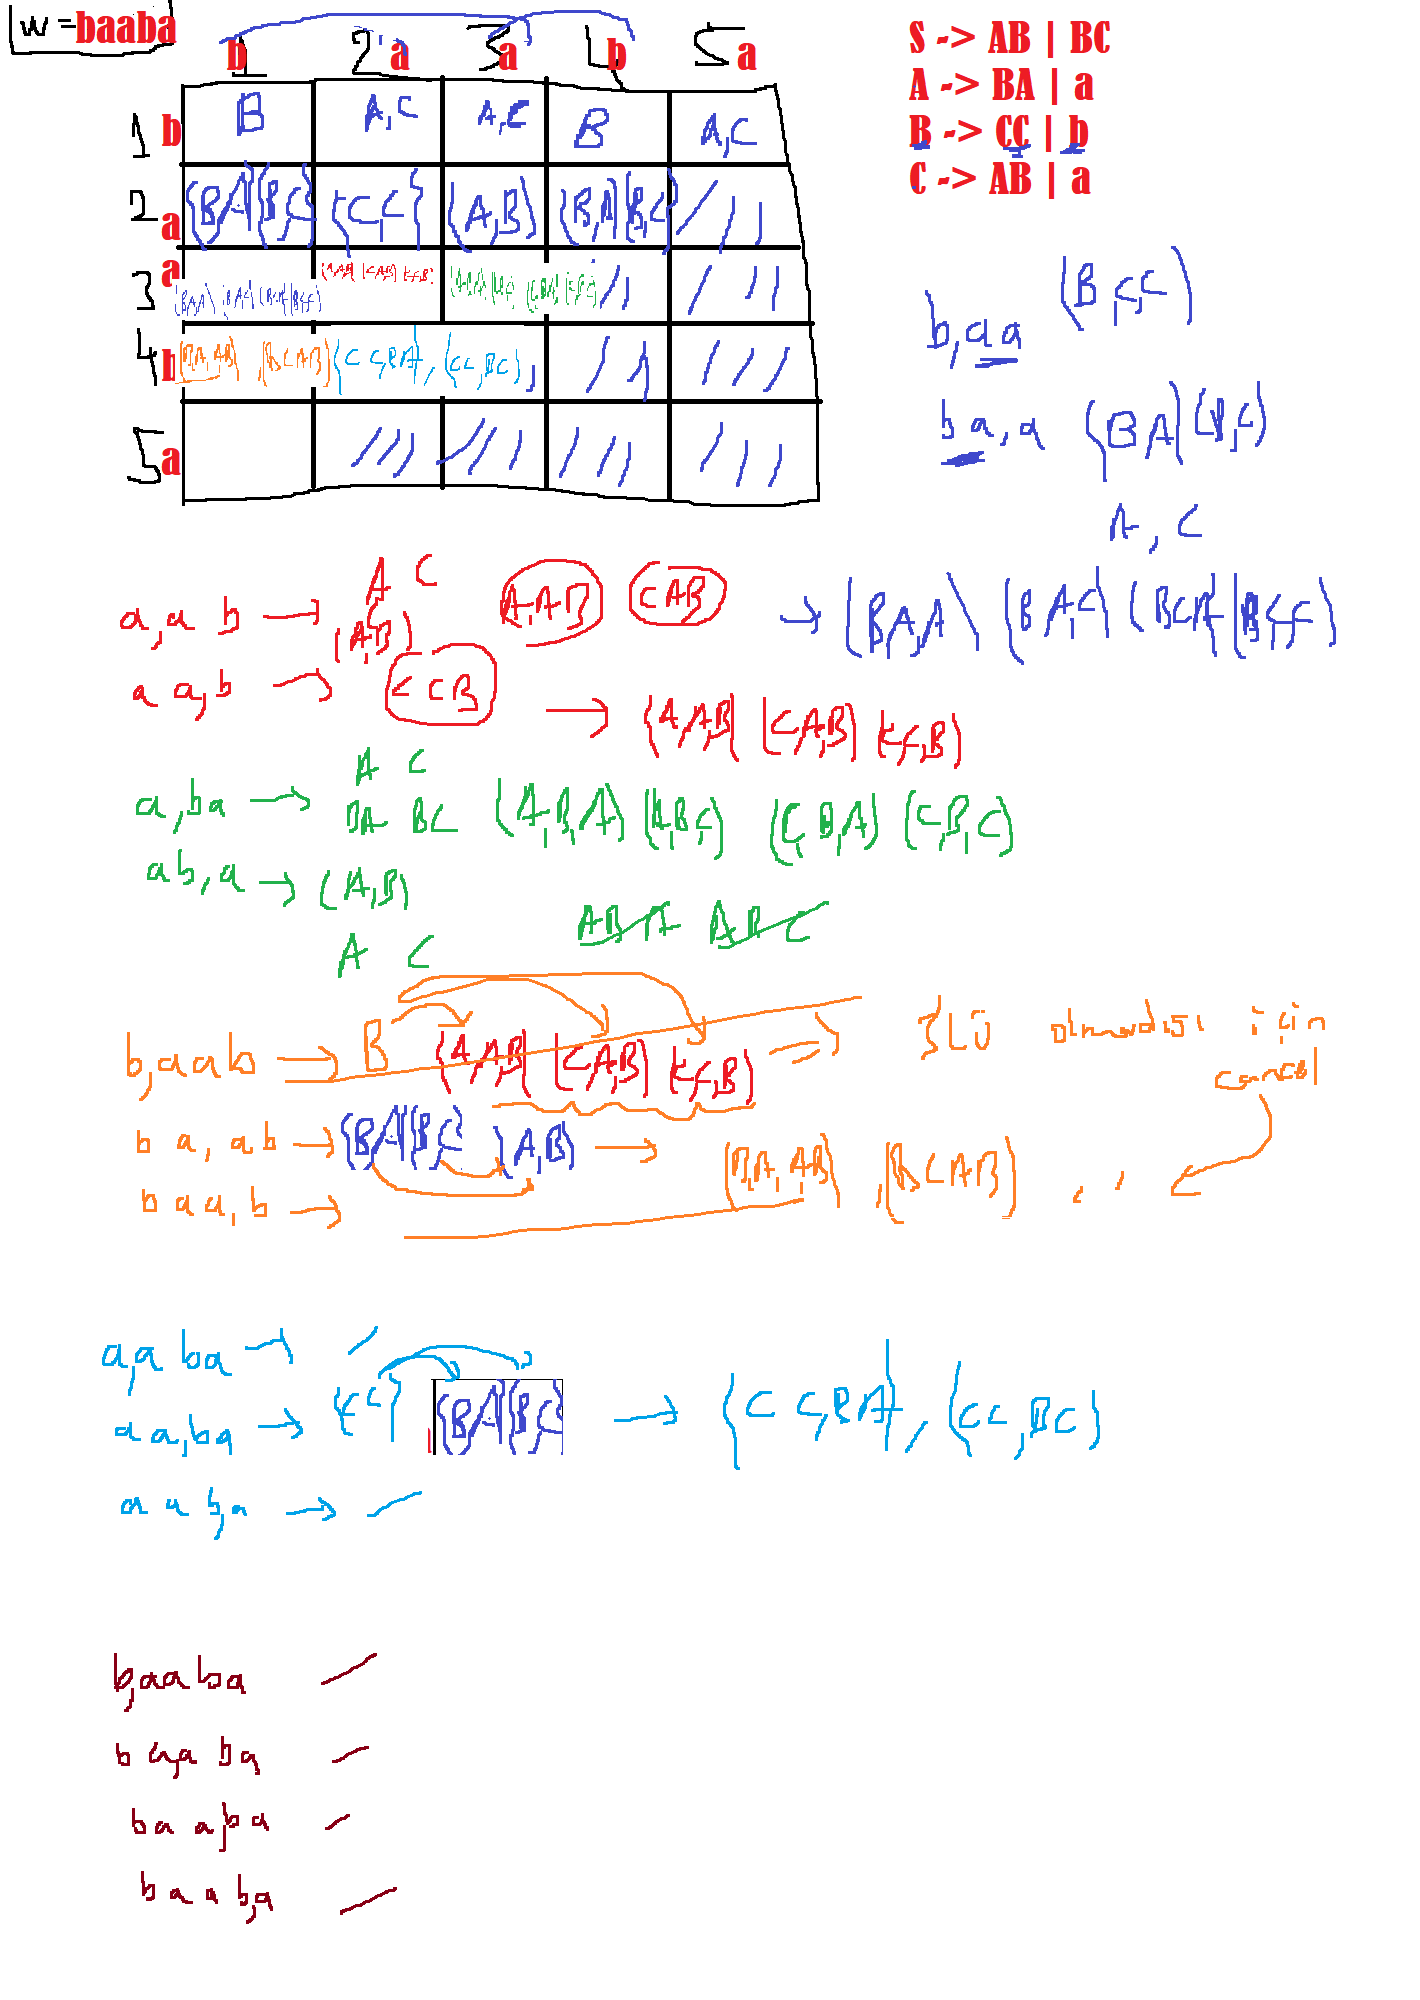 w = baaba
1 2 3 4 5
b a a b a
S -> AB | BC
A -> BA | a
B -> CC | b
C -> AB | a
1 b B A,C A,C B A,C
2 a {B,A}{B,C} {C,C} {A,B} {B,A}{B,C}
3 a {BAA} {BAC} {BCA} {BCC} {AAB} {CAB} {CCB}
4 b {BA,AB} ,{BCAB} {CC,BA}, {CC,BC},
5 a
b,aa {B,C,C}
ba,a {BA}{B,C}
A, C
a,a b → A C
{A,B} A,AB CAB
→ {B,A,A} {BA,C} {BCA} {B,C,C}
a a,b → CCB → {A,A,B} {C,A,B} {C,C,B}
A C
a,ba → BA BC {A,B,A} {A,B,C} {C,B,A} {C,B,C}
ab,a → {A,B}
ABA ABC
A C
b,aab ⇒ B {A,A,B} {C,A,B} {C,C,B} ⇒ 3Lü olmadısı için
cancel
b a, ab → {B,A}{B,C} {A,B} → {B,A, AB} ,{BCAB} , ,
b aa, b →
a,a ba →
aa,ba → {CC} {B,A}{B,C} → {CC,BA}, {CC,BC}
a a b,a →
b,aaba
b a,a ba
ba a,ba
baa b,a